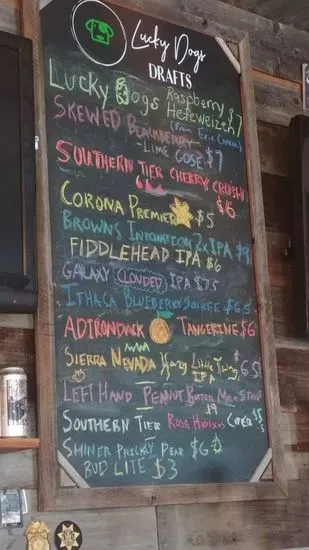 Lucky Dogs
DRAFTS
Lucky Dogs Raspberry $7
Hefeweizen
(From Erie Canal)
SKEWED BLACKBERRY
-LIME GOSE $7
SOUTHERN TIER CHERRY CRUSH
$6
CORONA PREMIER $5
BROWNS 2X IPA $9
FIDDLEHEAD IPA $6
GALAXY (CLOUDED) IPA $7.5
ITHACA BLUEBERRY $6.5
ADIRONDACK TANGERINE $6
SIERRA NEVADA Hazy Little Thing
IPA $6.5
LEFT HAND PEANUT BUTTER MILK STOUT
$9
SOUTHERN TIER ROSE HIBISCUS
SHINER PRICKLY PEAR $6
BUD LITE $3